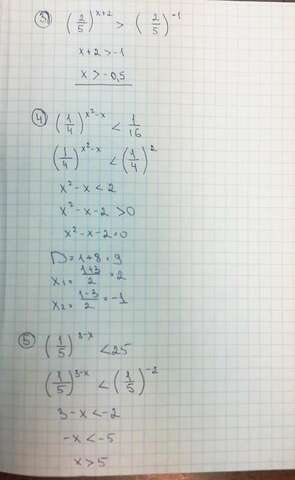 3) (2/5)^(x+2) > (2/5)^(-1)
x+2 > -1
x > -0,5
4) (1/4)^(x²-x) < 1/16
(1/4)^(x²-x) < (1/4)^2
x²-x < 2
x²-x-2 > 0
x²-x-2=0
D=1+8=9
x₁= (1+3)/2 = 2
x₂= (1-3)/2 = -1
5) (1/5)^(3-x) < 25
(1/5)^(3-x) < (1/5)^(-2)
3-x < -2
-x < -5
x > 5